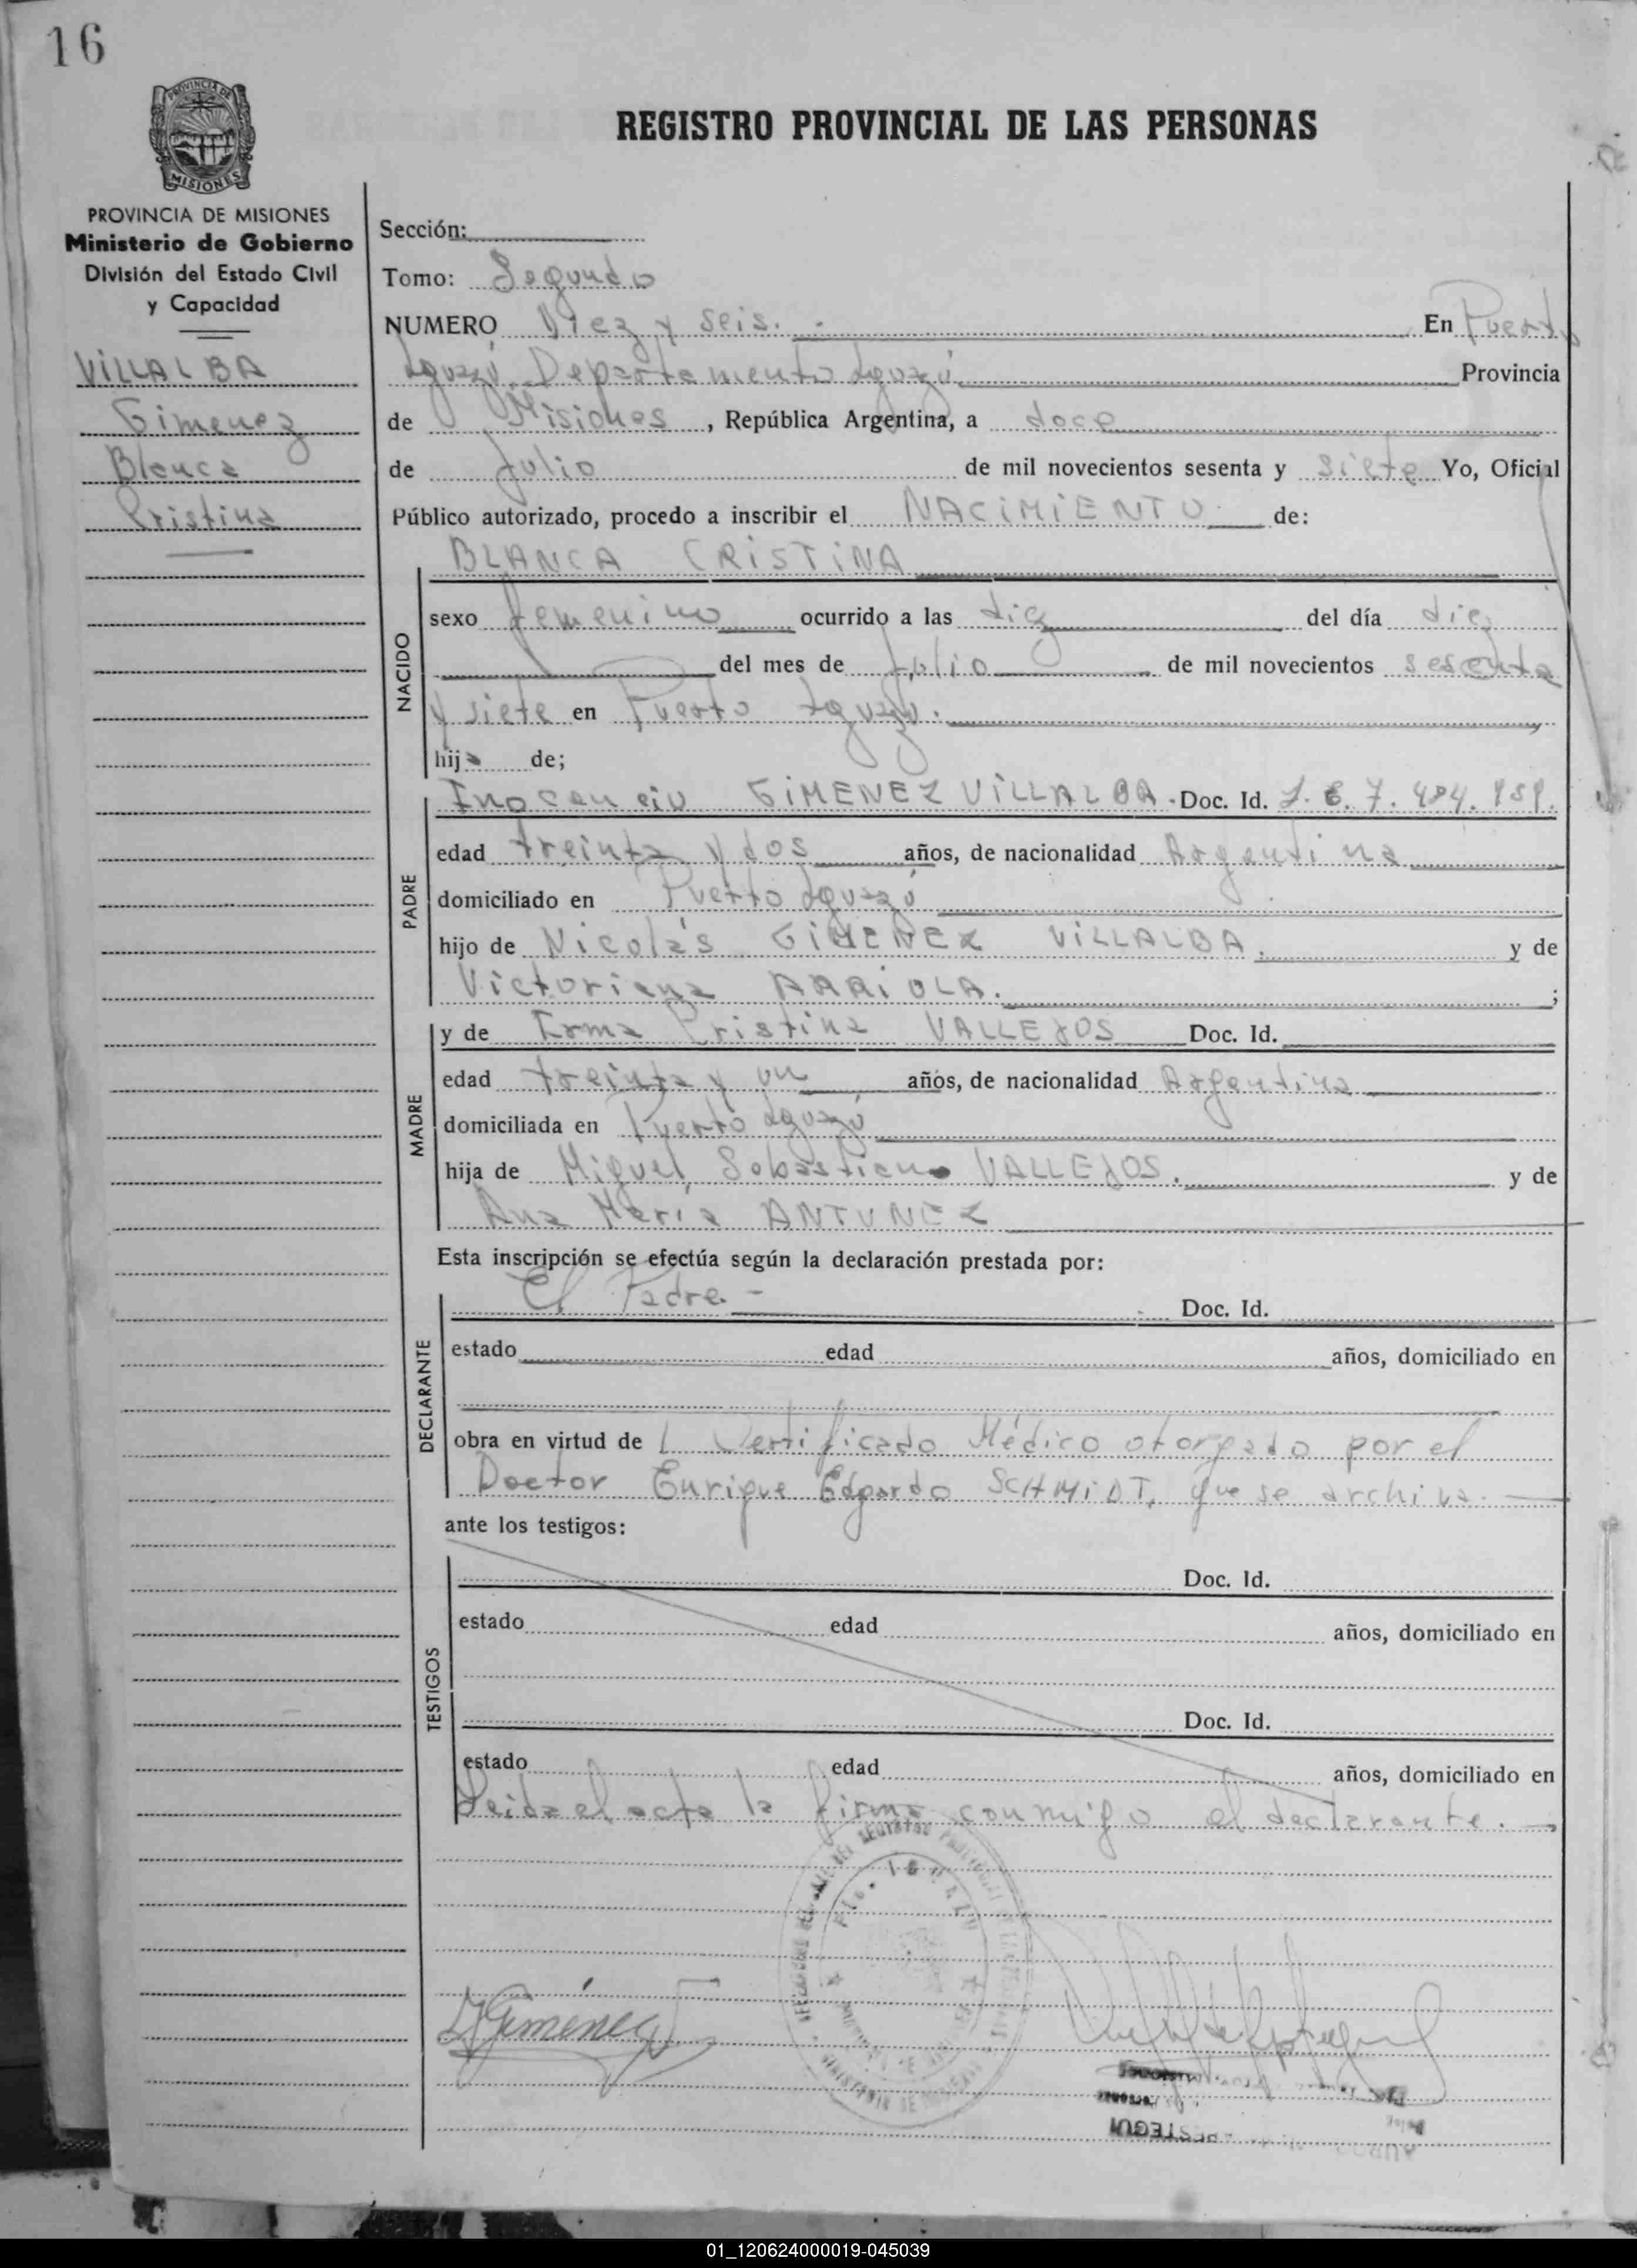 16
PROVINCIA DE MISIONES
REGISTRO PROVINCIAL DE LAS PERSONAS
PROVINCIA DE MISIONES
Ministerio de Gobierno
División del Estado Civil
y Capacidad
VILLALBA
Gimenez
Blanca
Cristina
Sección:
Tomo: Segundo
NUMERO Diez y seis. En Puerto
Iguazú, Departamento Iguazú Provincia
de Misiones, República Argentina, a doce
de Julio de mil novecientos sesenta y siete Yo, Oficial
Público autorizado, procedo a inscribir el NACIMIENTO de:
BLANCA CRISTINA
NACIDO
sexo femenino ocurrido a las diez del día diez
del mes de Julio de mil novecientos sesenta
y siete en Puerto Iguazú.
hija de;
PADRE
Inocencio GIMENEZ VILLALBA. Doc. Id.
edad treinta y dos años, de nacionalidad Argentina
domiciliado en Puerto Iguazú
hijo de Nicolás GIMENEZ VILLALBA. y de
Victoriana ARRIOLA. ;
MADRE
y de Irma Cristina VALLEJOS Doc. Id.
edad treinta y un años, de nacionalidad Argentina
domiciliada en Puerto Iguazú
hija de Miguel Sebastian VALLEJOS. y de
Ana María ANTUNEZ
Esta inscripción se efectúa según la declaración prestada por:
DECLARANTE
El Padre.- Doc. Id.
estado edad años, domiciliado en
obra en virtud de l Certificado Médico otorgado por el
Doctor Enrique Edgardo SCHMIDT, que se archiva.
ante los testigos:
TESTIGOS
Doc. Id.
estado edad años, domiciliado en
Doc. Id.
estado edad años, domiciliado en
Leida el acta la firma conmigo el declarante.
I Giménez V
01_120624000019-045039